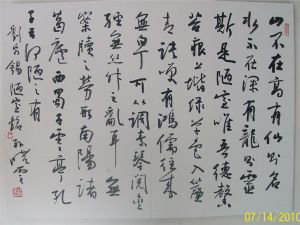 山不在高有仙則名
水不在深有龍則靈
斯是陋室唯吾德馨
苔痕上階綠草色入簾
青談笑有鴻儒往來
無白丁可以調素琴閱金
經無絲竹之亂耳無
案牘之勞形南陽諸
葛廬西蜀子雲亭孔
子云何陋之有
劉禹錫陋室銘 孫曉雲
07/14/2010